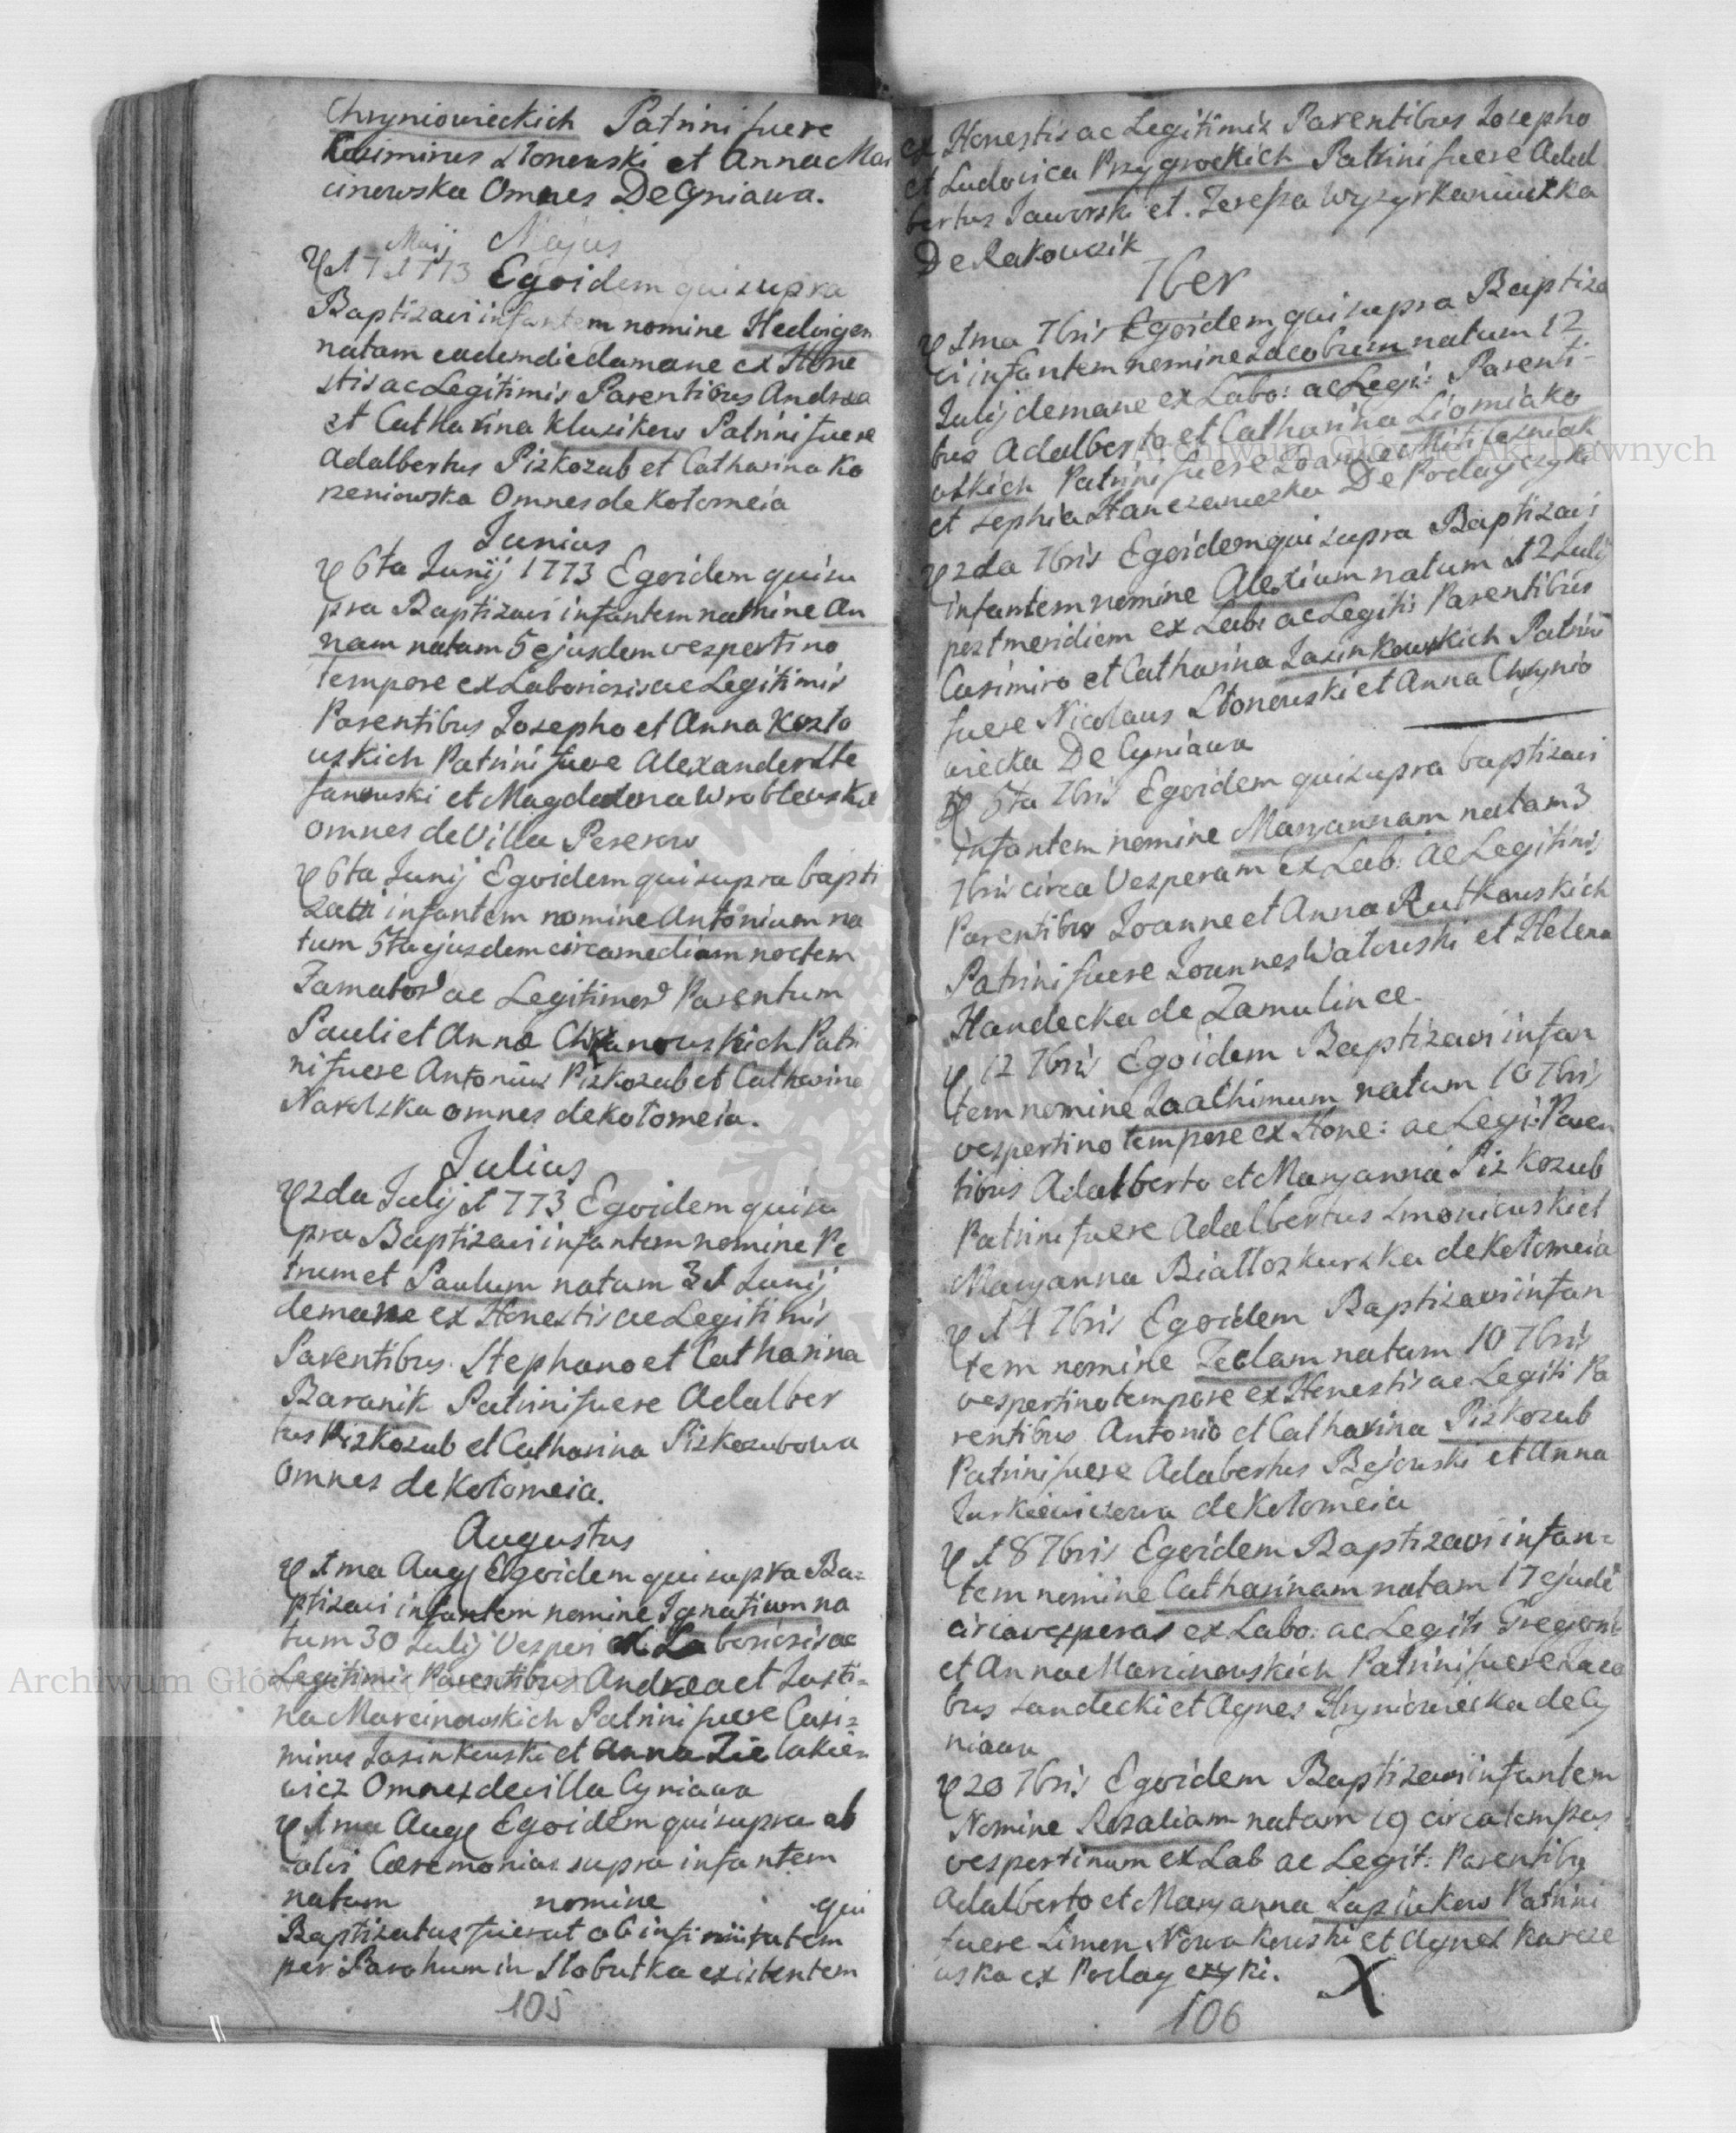 Chryniowieckich Patrini fuere
Casimirus Słonewski et Anna Mar
cinowska Omnes De Cyniawa.
Maij Majus
17 1773 Egoidem qui supra
Baptizavi infantem nomine Hedvigem
natam eademdie damane ex Hone
stis ac Legitimis Parentibus Andrea
et Catharina Klusikow Patrini fuere
Adalbertus Pizkozub et Catharina Ko
rzeniowska Omnes de Kołomeia
Junius
6ta Junij 1773 Egoidem quisu
pra Baptizavi infantem nomine An
nam natam 5 ejusdem vespertino
tempore ex Laboriosis ac Legitimis
Parentibus Josepho et Anna Kozło
wskich Patrini fuere Alexander Ste
fanowski et Magdalena Wroblewska
omnes de Villa Pererow
6ta Junij Egoidem qui supra bapti
zavi infantem nomine Antonium na
tum 5ta ejusdem circa mediam noctem
Famator ac Legitimor Parentum
Pauli et Anna Chrzanowskich Patri
ni fuere Antonius Pizkozub et Catharina
Narolska omnes de Kołomeia.
Julius
2da Julij 1773 Egoidem quisu
pra Baptizavi infantem nomine Pe
trum et Paulum natum 31 Junij
de mane ex Honestis ac Legitimis
Parentibus Stephano et Catharina
Baranik Patrini fuere Adalber
tus Pizkozub et Catharina Pizkozubowa
Omnes de Kołomeia.
Augustus
1ma Aug Egoidem qui supra Ba=
ptizavi infantem nomine Ignatium na
tum 30 Julij Vesperi ex Laboriosis ac
Legitimis Parentibus Andrea et Justi=
na Marcinowskich Patrini fuere Casi=
mirus Jasinkowski et Anna Zielakie=
wicz Omnes de villa Cyniawa
1ma Aug Egoidem qui supra ab
solvi Cæremonias supra infantem
natum nomine qui
Baptizatus fuerat ob infirmitatem
per Parohum in Słobutka existentem
105
ex Honestis ac Legitimis Parentibus Josepho
et Ludovica Przygrockich Patrini fuere Adal
bertus Jaworski et Teressa Wyzyrkaniuszka
De Rakowczik
7ber
1ma 7bris Egoidem qui supra Baptiza
vi infantem nomine Jacobum natum 12
Julij de mane ex Labo: ac Legi: Parenti-
bus Adalberto et Catharina Siomiako
wskich Patrini fuere Leszniak
et Sophia Hanczaruszka De Podayczyki
2da 7bris Egoidem qui supra Baptizavi
infantem nomine Alexium natum 12 Julij
post meridiem ex Lab: ac Legiti: Parentibus
Casimiro et Catharina Jasinkowskich Patrini
fuere Nicolaus Słonowski et Anna Chrynio
wiecka De Cyniawa
5ta 7bris Egoidem qui supra baptizavi
infantem nomine Maryannam natam 3
7bris circa Vesperam ex Lab: ac Legitimis
Parentibus Joanne et Anna Rutkowskich
Patrini fuere Joannes Watowski et Helena
Handecka de Zamulince.
12 7bris Egoidem Baptizavi infan
tem nomine Joachimum natum 10 7bris
vespertino tempore ex Hone: ac Legi: Paren
tibus Adalberto et Maryanna Pizkozub
Patrini fuere Adalbertus Smoniewski et
Maryanna Białłoskurska de Kołomeia
14 7bris Egoidem Baptizavi infan
tem nomine Teclam natam 10 7bris
vespertino tempore ex Honestis ac Legiti Pa
rentibus Antonio et Catharina Pizkozub
Patrini fuere Adabertus Bejowski et Anna
Jurkiewiczowa de Kołomeia
18 7bris Egoidem Baptizavi infan=
tem nomine Catharinam natam 17 ejude
circa vesperas ex Labo: ac Legiti Gregori
et Anna Marcinowskich Patrini fuere Jaco
bus Sandecki et Agnes Hryniowiecka de Cy
niawa
20 7bris Egoidem Baptizavi infantem
Nomine Rozaliam natam 19 circa tempus
vespertinum ex Lab ac Legit: Parentibus
Adalberto et Maryanna Łapiukow Patrini
fuere Simon Nowakowski et Agnes Karcze
wska ex Podayczyki.
X
106
Archiwum Główne Akt Dawnych
Archiwum Główne Akt Dawnych